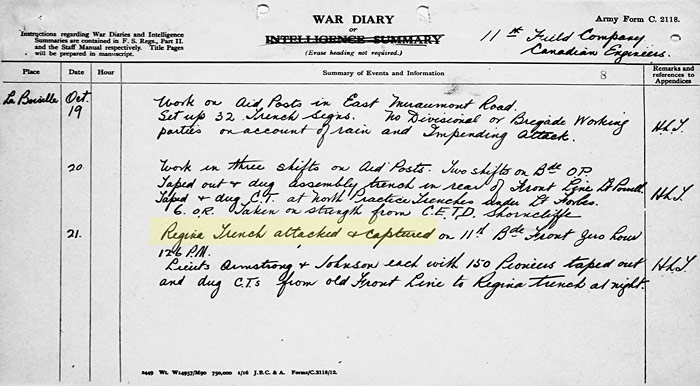 Instructions regarding War Diaries and Intelligence
Summaries are contained in F. S. Regs., Part II.
and the Staff Manual respectively. Title Pages
will be prepared in manuscript.
WAR DIARY
or
INTELLIGENCE SUMMARY
(Erase heading not required.)
Army Form C. 2118.
11th Field Company
Canadian Engineers.
Place Date Hour Summary of Events and Information 8 Remarks and references to Appendices
La Boiselle Oct. 19 Work on Aid Posts in East Miraumont Road.
Set up 32 Trench Signs. No Divisional or Brigade Working
parties on account of rain and Impending Attack. H.L.T.
20 Work in three shifts on Aid Posts. Two shifts on Bde O.P.
Taped out & dug assembly trench in rear of Front Line Lt Powell.
Taped & dug C.T. at North Practice Trenches under Lt Forbes. H.L.T.
6. O.R. Taken on strength from C.E.T.D. Shorncliffe
21. Regina Trench attacked & captured on 11th Bde Front Zero hour
12.6 P.M.
Lieuts Armstrong & Johnson each with 150 Pioneers taped out H.L.T.
and dug C.Ts from old Front Line to Regina trench at night.
2449 Wt. W14957/M90 750,000 1/16 J.B.C. & A. Forms/C.2118/12.